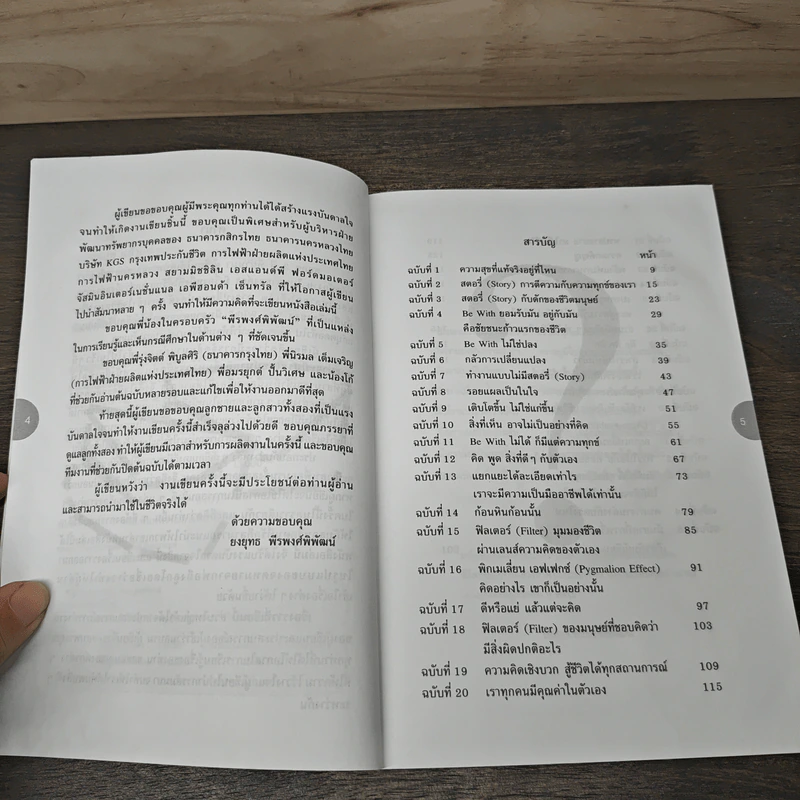 ผู้เขียนขอขอบคุณผู้มีพระคุณทุกท่านได้ได้สร้างแรงบันดาลใจ
จนทำให้เกิดงานเขียนชิ้นนี้ ขอบคุณเป็นพิเศษสำหรับผู้บริหารฝ่าย
พัฒนาทรัพยากรบุคคลของ ธนาคารกสิกรไทย ธนาคารนครหลวงไทย
บริษัท KGS กรุงเทพประกันชีวิต การไฟฟ้าฝ่ายผลิตแห่งประเทศไทย
การไฟฟ้านครหลวง สยามมิชชิลิน เอสแอนด์พี ฟอร์ดมอเตอร์
จัสมินอินเตอร์เนชั่นแนล เอพีฮอนด้า เซ็นทรัล ที่ให้โอกาสผู้เขียน
ไปนำสัมนาหลาย ๆ ครั้ง จนทำให้มีความคิดที่จะเขียนหนังสือเล่มนี้
ขอบคุณพี่น้องในครอบครัว “พีรพงศ์พิพัฒน์” ที่เป็นแหล่ง
ในการเรียนรู้และเห็นกรณีศึกษาในด้านต่าง ๆ ที่ชัดเจนขึ้น
ขอบคุณพี่รุ่งจิตต์ พิบูลศิริ (ธนาคารกรุงไทย) พี่นิรมล เต็มเจริญ
(การไฟฟ้าฝ่ายผลิตแห่งประเทศไทย) พี่อมรยุกต์ ปั้นวิเศษ และน้องโก้
ที่ช่วยกันอ่านต้นฉบับหลายรอบและแก้ไขเพื่อให้งานออกมาดีที่สุด
ท้ายสุดนี้ผู้เขียนขอขอบคุณลูกชายและลูกสาวทั้งสองที่เป็นแรง
บันดาลใจจนทำงานเขียนครั้งนี้สำเร็จลุล่วงไปด้วยดี ขอบคุณภรรยาที่
ดูแลลูกทั้งสอง ทำให้ผู้เขียนมีเวลาสำหรับการผลิตงานในครั้งนี้ และขอบคุณ
ทีมงานที่ช่วยกันปิดต้นฉบับได้ตามเวลา
ผู้เขียนหวังว่า งานเขียนครั้งนี้จะมีประโยชน์ต่อท่านผู้อ่าน
และสามารถนำมาใช้ในชีวิตจริงได้
ด้วยความขอบคุณ
ยงยุทธ พีรพงศ์พิพัฒน์
4
สารบัญ
หน้า
ฉบับที่ 1 ความสุขที่แท้จริงอยู่ที่ไหน 9
ฉบับที่ 2 สตอรี่ (Story) การตีความกับความทุกข์ของเรา 15
ฉบับที่ 3 สตอรี่ (Story) กับดักของชีวิตมนุษย์ 23
ฉบับที่ 4 Be With ยอมรับมัน อยู่กับมัน 29
คือชัยชนะก้าวแรกของชีวิต
ฉบับที่ 5 Be With ไม่ใช่ปลง 35
ฉบับที่ 6 กลัวการเปลี่ยนแปลง 39
ฉบับที่ 7 ทำงานแบบไม่มีสตอรี่ (Story) 43
ฉบับที่ 8 รอยแผลเป็นในใจ 47
ฉบับที่ 9 เติบโตขึ้น ไม่ใช่แก่ขึ้น 51
ฉบับที่ 10 สิ่งที่เห็น อาจไม่เป็นอย่างที่คิด 55
ฉบับที่ 11 Be With ไม่ได้ ก็มีแต่ความทุกข์ 61
ฉบับที่ 12 คิด พูด สิ่งที่ดีๆ กับตัวเอง 67
ฉบับที่ 13 แยกแยะได้ละเอียดเท่าไร 73
เราจะมีความเป็นมืออาชีพได้เท่านั้น
ฉบับที่ 14 ก้อนหินก้อนนั้น 79
ฉบับที่ 15 ฟิลเตอร์ (Filter) มุมมองชีวิต 85
ผ่านเลนส์ความคิดของตัวเอง
ฉบับที่ 16 พิกเมเลี่ยน เอฟเฟกซ์ (Pygmalion Effect) 91
คิดอย่างไร เขาก็เป็นอย่างนั้น
ฉบับที่ 17 ดีหรือแย่ แล้วแต่จะคิด 97
ฉบับที่ 18 ฟิลเตอร์ (Filter) ของมนุษย์ที่ชอบคิดว่า 103
มีสิ่งผิดปกติอะไร
ฉบับที่ 19 ความคิดเชิงบวก สู้ชีวิตได้ทุกสถานการณ์ 109
ฉบับที่ 20 เราทุกคนมีคุณค่าในตัวเอง 115
5